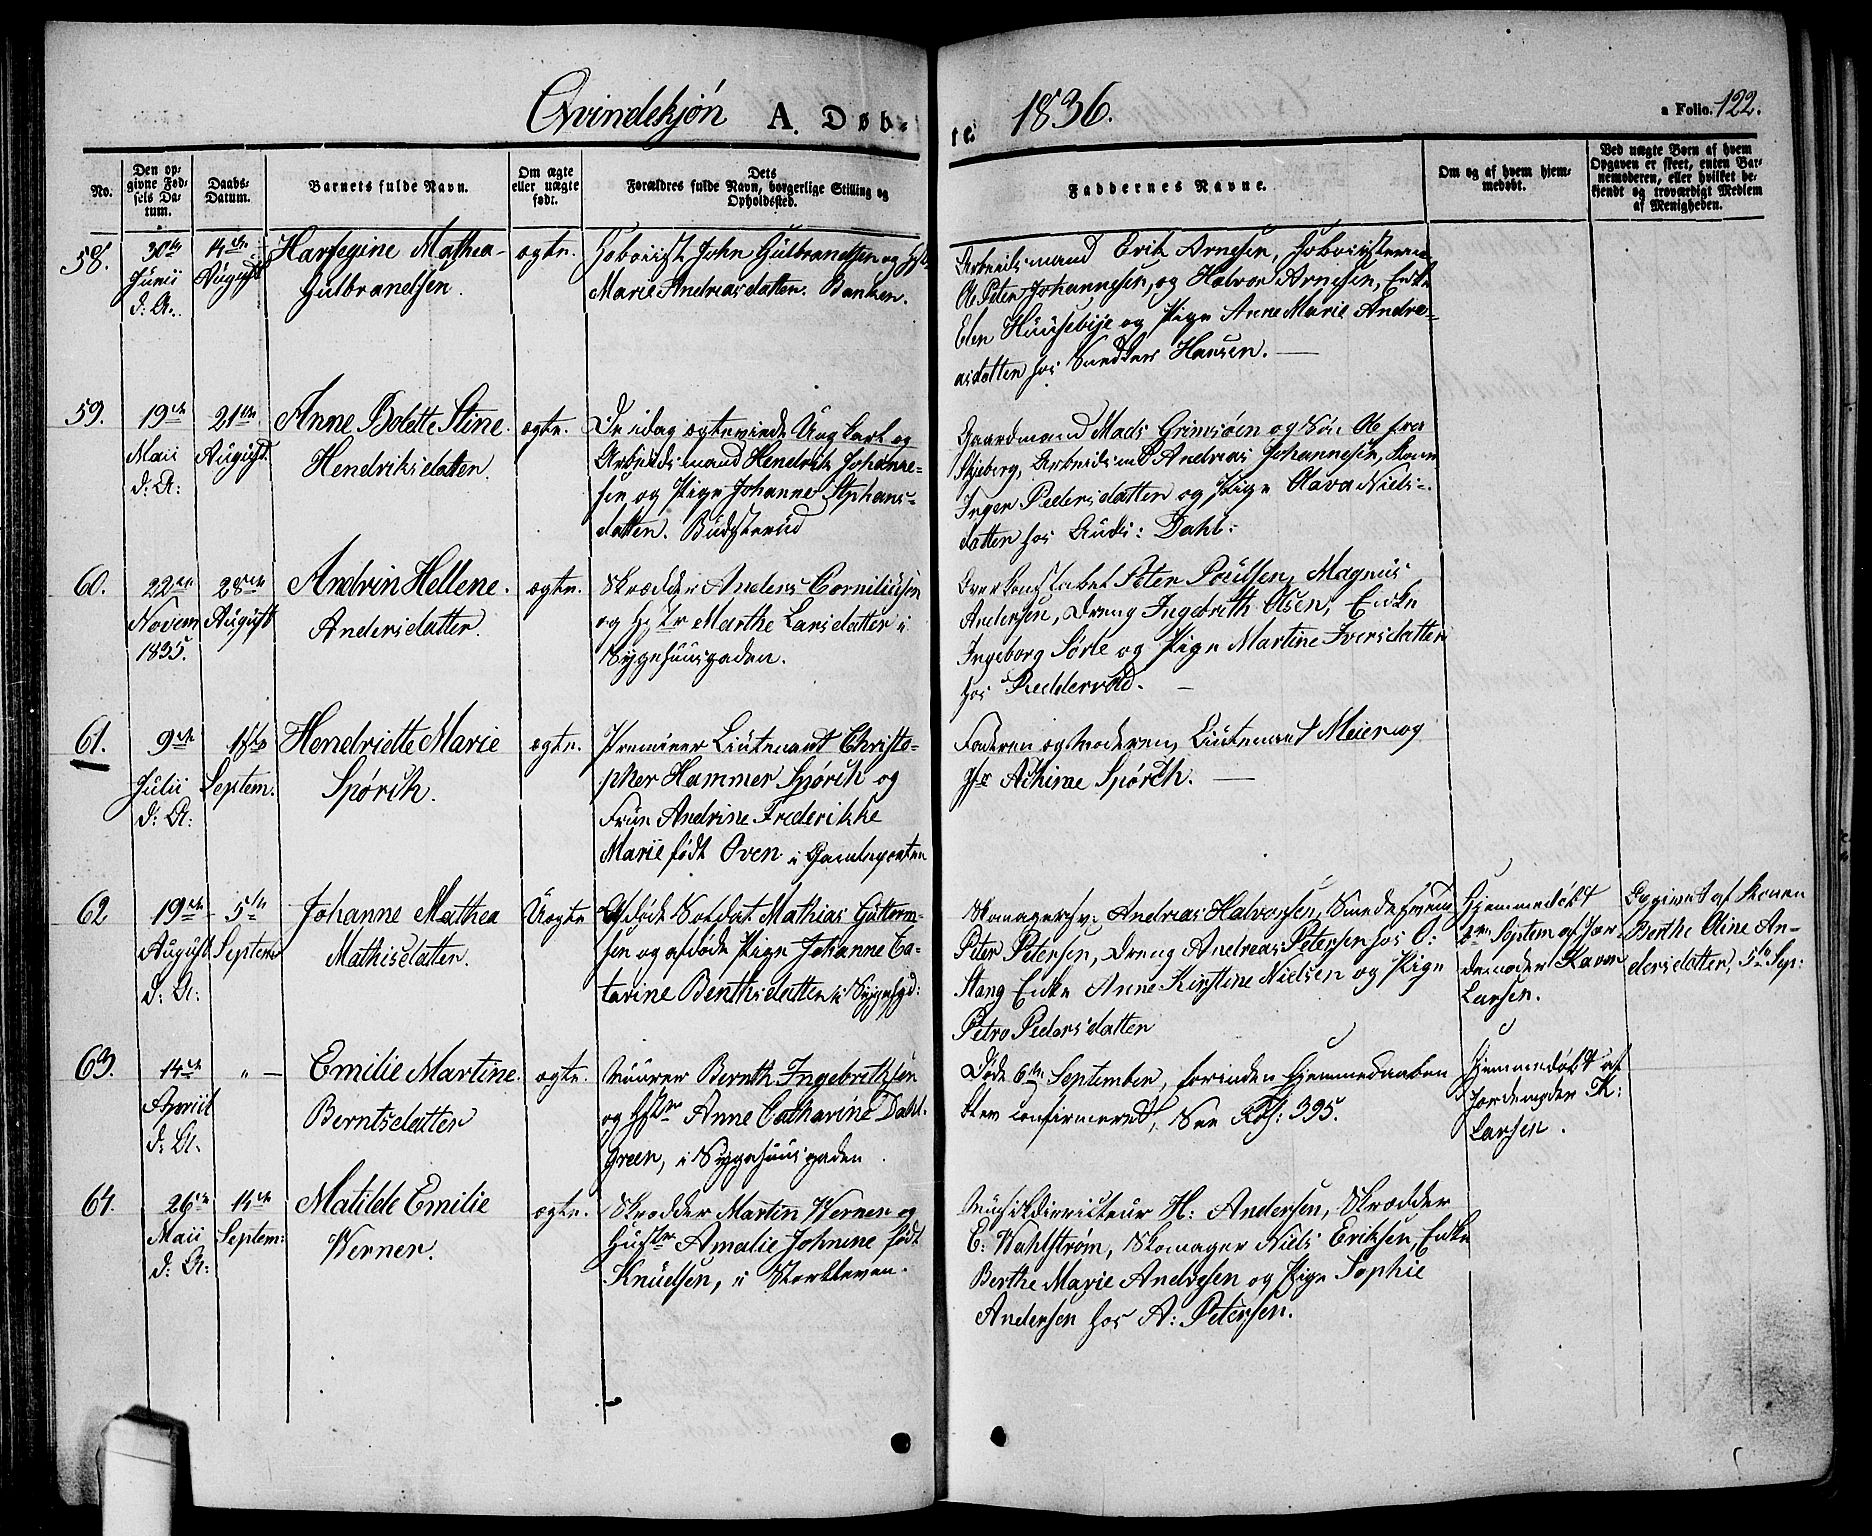 Qvindekjøn A. Døb-
te. 1836.
a Folio. 122.
No.
Den op-
givne Fød-
sels Da-
tum.
Daabs-
Datum.
Barnets fulde Navn.
Om ægte
eller uægte
født.
Dets
Forældres fulde Navn, borgerlige Stilling og
Opholdssted.
Faddernes Navne.
Om og af hvem hjem-
medøbt.
Ved uægte Børn af hvem
Opgaven er skeet, enten Bar-
nemoderen, eller hvilket be-
kjendt og troværdigt Medlem
af Menigheden.
58.
30te
Junii
d: A:
14de
August
Mathea
Gulbrandsen.
ægte.
Hoboiist John Gulbrandsen og
Marie Andreasdatter. Banken.
Arbeidsmand Erik Arnesen,
Ole Peter Johannesen, og Halvor Arnesen, Enke
Elen Huusebye og Pige Anne Marie Andre-
asdatter hos Snedker Hansen.
59.
19de
Maii
d: A:
21de
August
Anne Bolette Stine
Hendriksdatter.
ægte.
De idag ægteviede Ungkarl og
Arbeidsmand Hendrik Johanne-
sen og Pige Johanne Stphans-
datter.
Gaardmand Mads Grimsøen og Søn Ole fra
Skjeberg, Arbeidsmd Andreas Johannesen, Kone
Inger Pedersdatter og Pige Olava Niels-
datter hos Dahl:
60.
22de
Novem
1835.
28de
August
Andrin Hellene
Andersdatter.
ægte.
Skrædder Anders Corniliusen
og Hstr Marthe Larsdatter i
Sygehuusgaden.
Overkonstabel Peter Poulsen, Magnus
Andersen, Dreng Ingebrith Olsen, Enke
Ingeborg Sørle og Pige Martine Iversdatter
hos
61.
9de
Julii
d: A:
Septem.
Hendriette Marie
Spørch.
ægte.
Premieer Liutenant Christo-
pher Hammer Spørch og
Frue Andrine Frederikke
Marie født Oven i Gamleporten
Faderen og Moderen, Liutenant Meier og
Jfr Achime Spørch.
62
19de
August
d: A:
5te
Septem
Johanne Mathea
Mathisdatter.
Uægte
Afdøde Soldat Mathias Gutterm-
sen og afdøde Pige Johanne Ca-
tarine Berthsdatter i Sygehgd:
Skomagersv: Andreas Halvorsen, Smedesvend
Peter Petersen, Dreng Andreas Petersen hos O:
Stang Enke Anne Kirstine Nielsen og Pige
Petro Pedersdatter
Hjemmedøbt
Septem af Jor-
demoder Karen
Larsen.
Opgivet af Konen
Berthe Oline An-
dersdatter, 5te Sep:
63.
14de
Apriil
d: A:
" —
Emilie Martine
Berntsdatter
ægte.
Muurer Bernth Ingebrithsen
og Hstr Anne Catharine Dahl-
green, i Sygehuusgaden
Døde 6te September, forinden Hjemmedaaben
blev confirmeret, See Fol: 395.
Hjemmedøbt af
Jordemoder K:
Larsen.
64.
26de
Maii
d: A:
14de
Septem:
Matilde Emilie
Werner.
ægte.
Skrædder Martin Werner og
Hustr Amalie Johnine født
Knudsen, i Storkleven.
Musikdirecteur H: Andersen, Skrædder
E: Wahlstrøm, Skomager Niels Eriksen, Enke
Berthe Marie Andersen og Pige Sophie
Andersen hos A: Petersen.